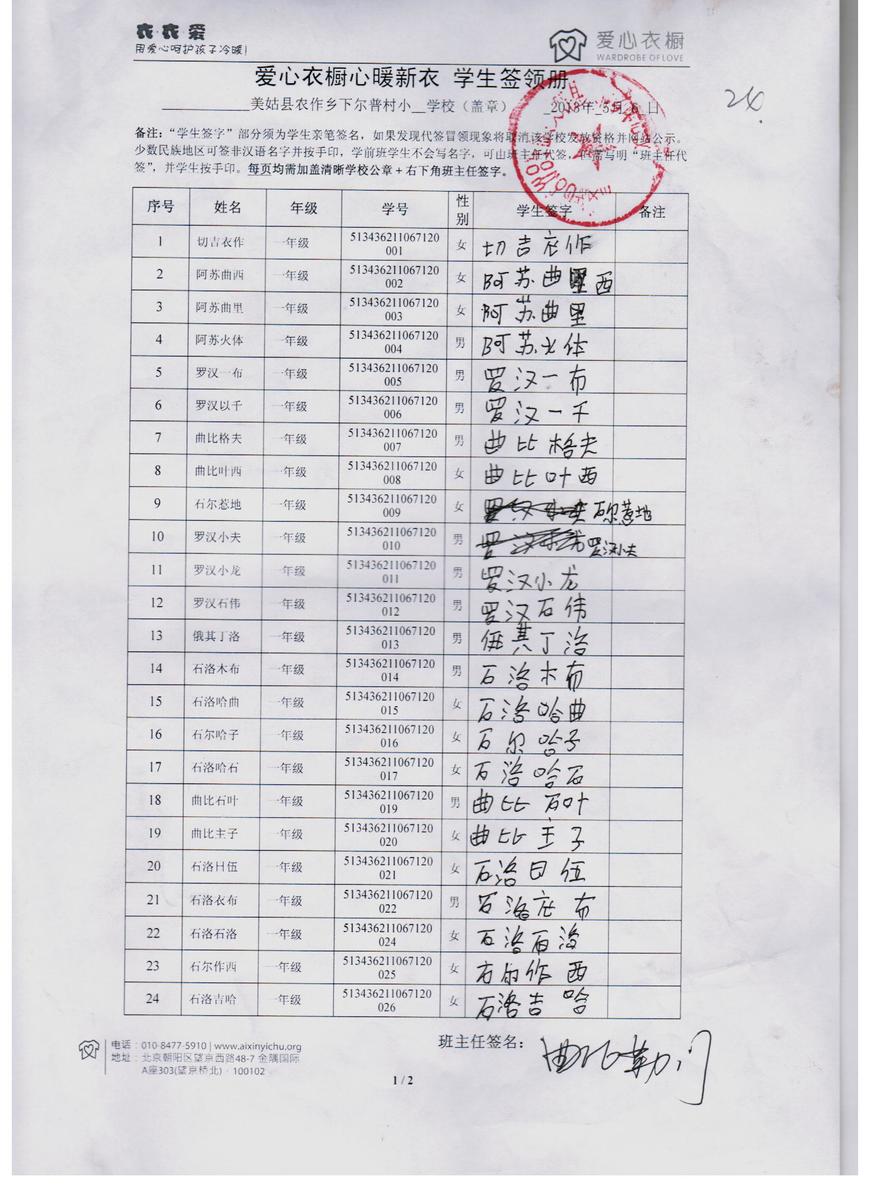 衣·衣·爱
用爱心呵护孩子冷暖!
爱心衣橱
WARDROBE OF LOVE
24
爱心衣橱心暖新衣 学生签领册
美姑县农作乡下尔普村小__学校（盖章） 2018年_5月_6_日
备注：“学生签字”部分须为学生亲笔签名，如果发现代签冒领现象将取消该学校发放资格并网站公示。
少数民族地区可签非汉语名字并按手印，学前班学生不会写名字，可由班主任代签，但需写明“班主任代
签”，并学生按手印。每页均需加盖清晰学校公章+右下角班主任签字。
序号 姓名 年级 学号 性别 学生签字 备注
1 切吉衣作 一年级 513436211067120001 女 切吉衣作
2 阿苏曲西 一年级 513436211067120002 女 阿苏曲西
3 阿苏曲里 一年级 513436211067120003 女 阿苏曲里
4 阿苏火体 一年级 513436211067120004 男 阿苏火体
5 罗汉一布 一年级 513436211067120005 男 罗汉一布
6 罗汉以千 一年级 513436211067120006 男 罗汉一千
7 曲比格夫 一年级 513436211067120007 男 曲比格夫
8 曲比叶西 一年级 513436211067120008 女 曲比叶西
9 石尔惹地 一年级 513436211067120009 女 石尔惹地
10 罗汉小夫 一年级 513436211067120010 男 罗汉小夫
11 罗汉小龙 一年级 513436211067120011 男 罗汉小龙
12 罗汉石伟 一年级 513436211067120012 男 罗汉石伟
13 俄其丁洛 一年级 513436211067120013 男 其丁洛
14 石洛木布 一年级 513436211067120014 男 石洛木布
15 石洛哈曲 一年级 513436211067120015 女 石洛哈曲
16 石尔哈子 一年级 513436211067120016 女 石尔哈子
17 石洛哈石 一年级 513436211067120017 女 石洛哈石
18 曲比石叶 一年级 513436211067120019 男 曲比石叶
19 曲比主子 一年级 513436211067120020 女 曲比主子
20 石洛日伍 一年级 513436211067120021 女 石洛日伍
21 石洛衣布 一年级 513436211067120022 男 石洛衣布
22 石洛石洛 一年级 513436211067120024 女 石洛石洛
23 石尔作西 一年级 513436211067120025 女 石尔作西
24 石洛吉哈 一年级 513436211067120026 女 石洛吉哈
电话：010-8477-5910 | www.aixinyichu.org
地址：北京朝阳区望京西路48-7 金隅国际
A座303(望京桥北) · 100102
班主任签名：曲比勒门
1 / 2